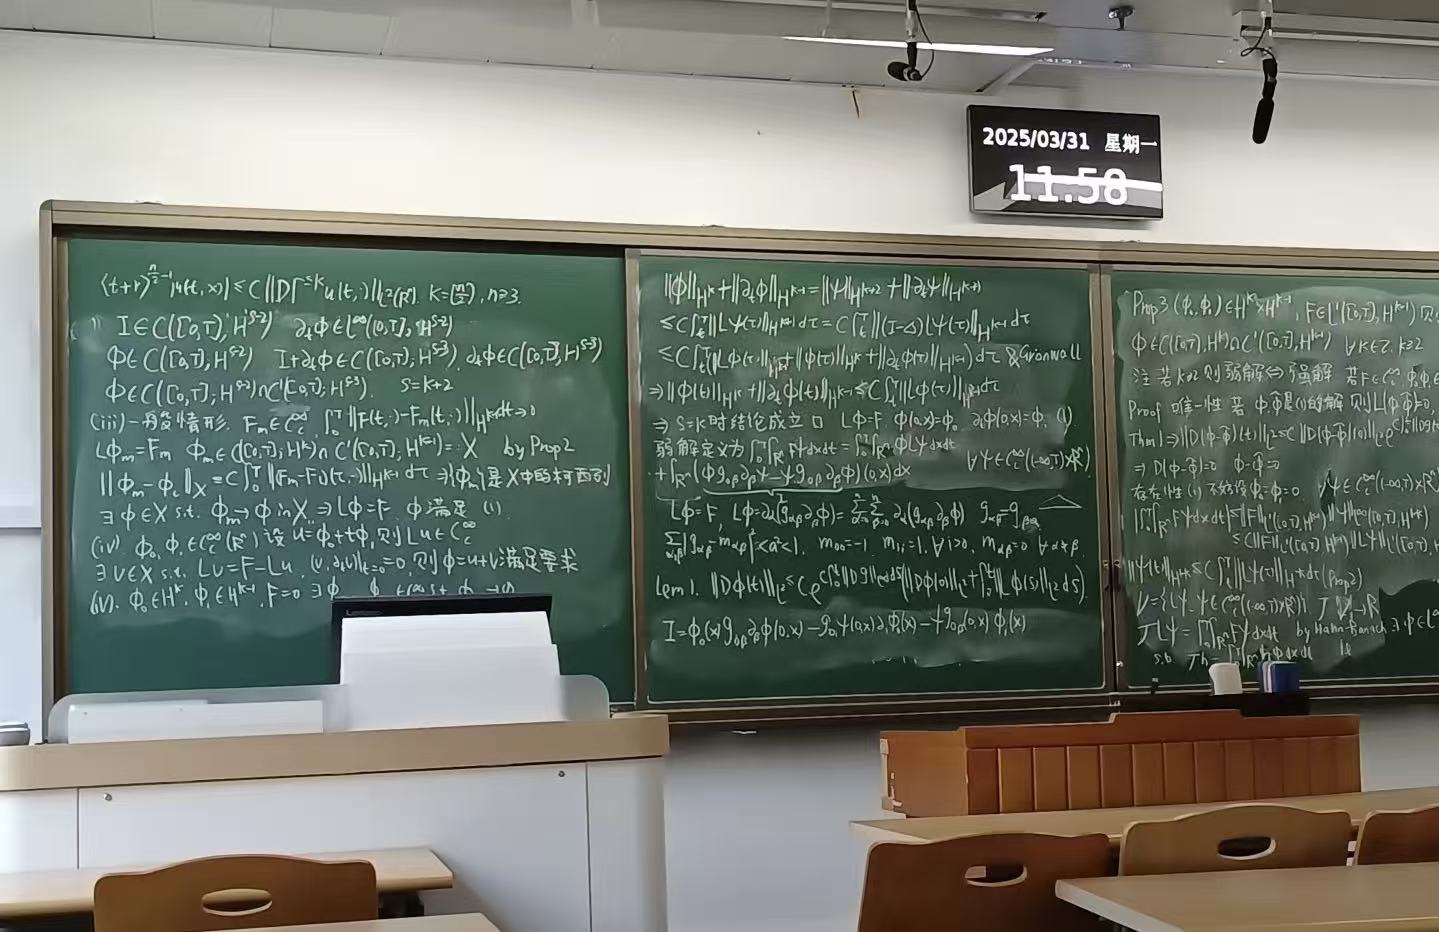 2025/03/31 星期一
11:58
⟨t+r⟩^{n/2-1}|u(t,x)| ≤ C‖DΓ^{≤k}u(t,·)‖_{L²(Rⁿ)}, n≥3.
I∈C([0,T], H^{s-2}) ∂ₜΦ∈L^∞([0,T], H^{s-2})
Φ∈C([0,T], H^{s-2}) I+∂ₜΦ∈C([0,T], H^{s-3}), ∂ₜΦ∈C([0,T], H^{s-3})
Φ∈C([0,T]; H^{s-2})∩C'([0,T]; H^{s-3}). s=k+2
(iii) 一般情形. Fₘ∈C_c^∞ ∫₀ᵀ‖F(t,·)-Fₘ(t,·)‖_{H^{k-1}}dt→0
LΦₘ=Fₘ Φₘ∈C([0,T]; H^k)∩C'([0,T]; H^{k-1})=:X by Prop2
‖Φₘ-Φ_l‖_X ≤C∫₀ᵀ‖Fₘ-F_l(τ,·)‖_{H^{k-1}}dτ ⇒ {Φₘ}是X中的柯西列
∃Φ∈X s.t. Φₘ→Φ in X ⇒ LΦ=F. Φ满足 (1).
(iv) Φ₀,Φ₁∈C_c^∞(Rⁿ) 设 u=Φ₀+tΦ₁ 则Lu∈C_c^∞
∃v∈X s.t. Lv=F-Lu, (v,∂ₜv)|_{t=0}=0, 则Φ=u+v满足要求
Φ₀∈H^k, Φ₁∈H^{k-1}, F=0 ∃
‖Φ‖_{H^k}+‖∂ₜΦ‖_{H^{k-1}}=‖Ψ‖_{H^{k+2}}+‖∂ₜΨ‖_{H^{k+1}}
≤C∫ₜᵀ‖LΨ(τ)‖_{H^{k+1}}dτ=C∫ₜᵀ‖(I-Δ)LΨ(τ)‖_{H^{k-1}}dτ
≤C∫ₜᵀ(‖LΦ(τ)‖_{H^{k-1}}+‖Φ(τ)‖_{H^k}+‖∂ₜΦ(τ)‖_{H^{k-1}})dτ & Gronwall
⇒‖Φ(t)‖_{H^k}+‖∂ₜΦ(t)‖_{H^{k-1}}≤C∫ₜᵀ‖LΦ(τ)‖_{H^{k-1}}dτ
⇒ s=k时结论成立 □ LΦ=F. Φ(0,x)=Φ₀ ∂ₜΦ(0,x)=Φ₁ (1)
弱解定义为∫₀ᵀ∫_{Rⁿ}FΨdxdt=∫₀ᵀ∫_{Rⁿ}ΦLΨdxdt
+∫_{Rⁿ}(Φg_{0β}∂_βΨ-Ψg_{0β}∂_βΦ)(0,x)dx ∀Ψ∈C_c^∞((-∞,T)×Rⁿ)
LΦ=F, LΦ=∂_α(g_{αβ}∂_βΦ)=ΣΣ∂_α(g_{αβ}∂_βΦ) g_{αβ}=g_{βα}
Σ|g_{αβ}-m_{αβ}|²<a²<1. m₀₀=-1 m_{ii}=1, ∀i>0, m_{αβ}=0 ∀α≠β.
Lem 1. ‖DΦ(t)‖_{L²}≤Ce^{C∫₀ᵗ‖Dg‖_∞ds}(‖DΦ(0)‖_{L²}+∫₀ᵗ‖LΦ(s)‖_{L²}ds).
I=Φ₀(x)g_{0β}∂_βΨ(0,x)-g_{0i}Ψ(0,x)∂ᵢΦ₀(x)-Ψg_{00}(0,x)Φ₁(x)
Prop3 (Φ₀,Φ₁)∈H^k×H^{k-1}, F∈L'([0,T], H^{k-1}) 则
Φ∈C([0,T], H^k)∩C'([0,T], H^{k-1}) ∀k∈Z, k≥2
注 若k≥2则弱解⇔强解 若F∈C_c^∞,
Proof 唯一性 若 Φ,Φ̃是(1)的解 则L(Φ-Φ̃)=0,
Thm1⇒‖D(Φ-Φ̃)(t)‖_{L²}≤C‖D(Φ-Φ̃)(0)‖_{L²}
⇒ D(Φ-Φ̃)=0 Φ-Φ̃=0
存在性 (i) 不妨设Φ₀=Φ₁=0. ∀Ψ∈C_c^∞((-∞,T)×Rⁿ)
|∫₀ᵀ∫_{Rⁿ}FΨdxdt|≤‖F‖_{L'([0,T],H^{k-1})}‖Ψ‖
≤C‖F‖_{L'([0,T],H^{k-1})}‖LΨ‖
‖Ψ(t)‖≤C∫ₜᵀ‖LΨ(τ)‖dτ (Prop2)
V={LΨ, Ψ∈C_c^∞((-∞,T)×Rⁿ)} T: V→R
TLΨ=∫₀ᵀ∫_{Rⁿ}FΨdxdt by Hahn-Banach ∃Φ∈L^∞